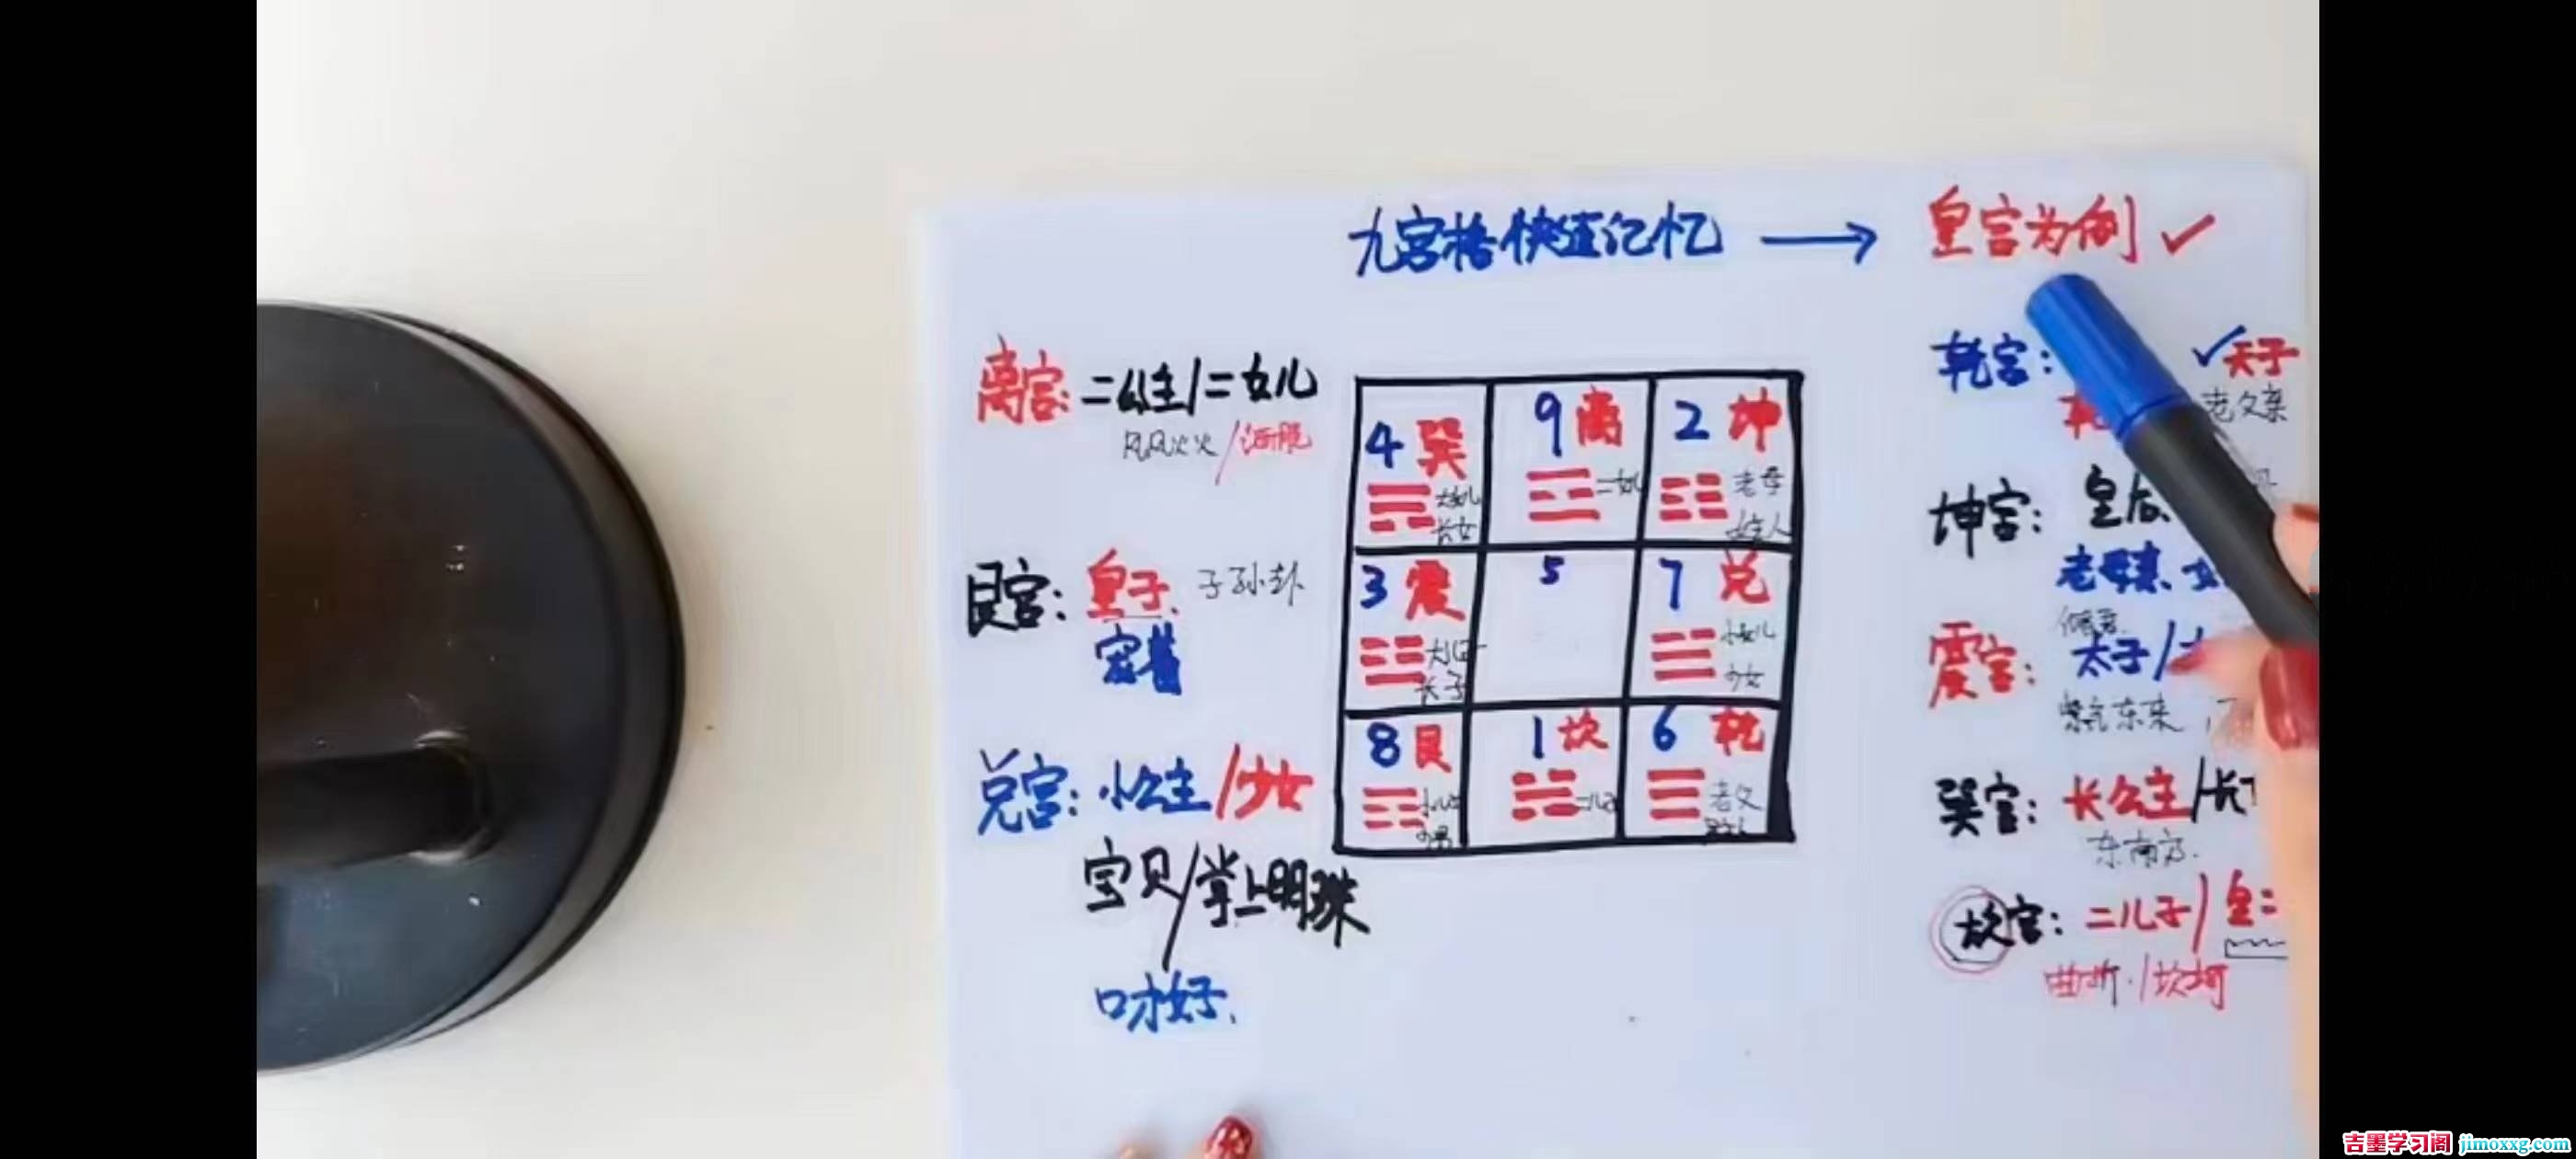 九宫格快速记忆 → 皇宫为例 ✓
离宫: 二公主/二女儿
风风火火/洒脱
艮宫: 皇子、 子孙卦
宠着
兑宫: 小公主/少女
宝贝/掌上明珠
口才好、
4 巽
长女
9 离
二女儿
2 坤
老母
女主人
3 震
大儿子
长子
5
7 兑
小女儿
少女
8 艮
少男
1 坎
二儿子
6 乾
老父
乾宫: ✓天子
老父亲
坤宫: 皇后、
老母亲、女
震宫: 太子/
紫气东来
巽宫: 长公主/长
东南方.
坎宫: 二儿子/皇二
曲折·/坎坷
吉墨学习阁 jimoxxg.com